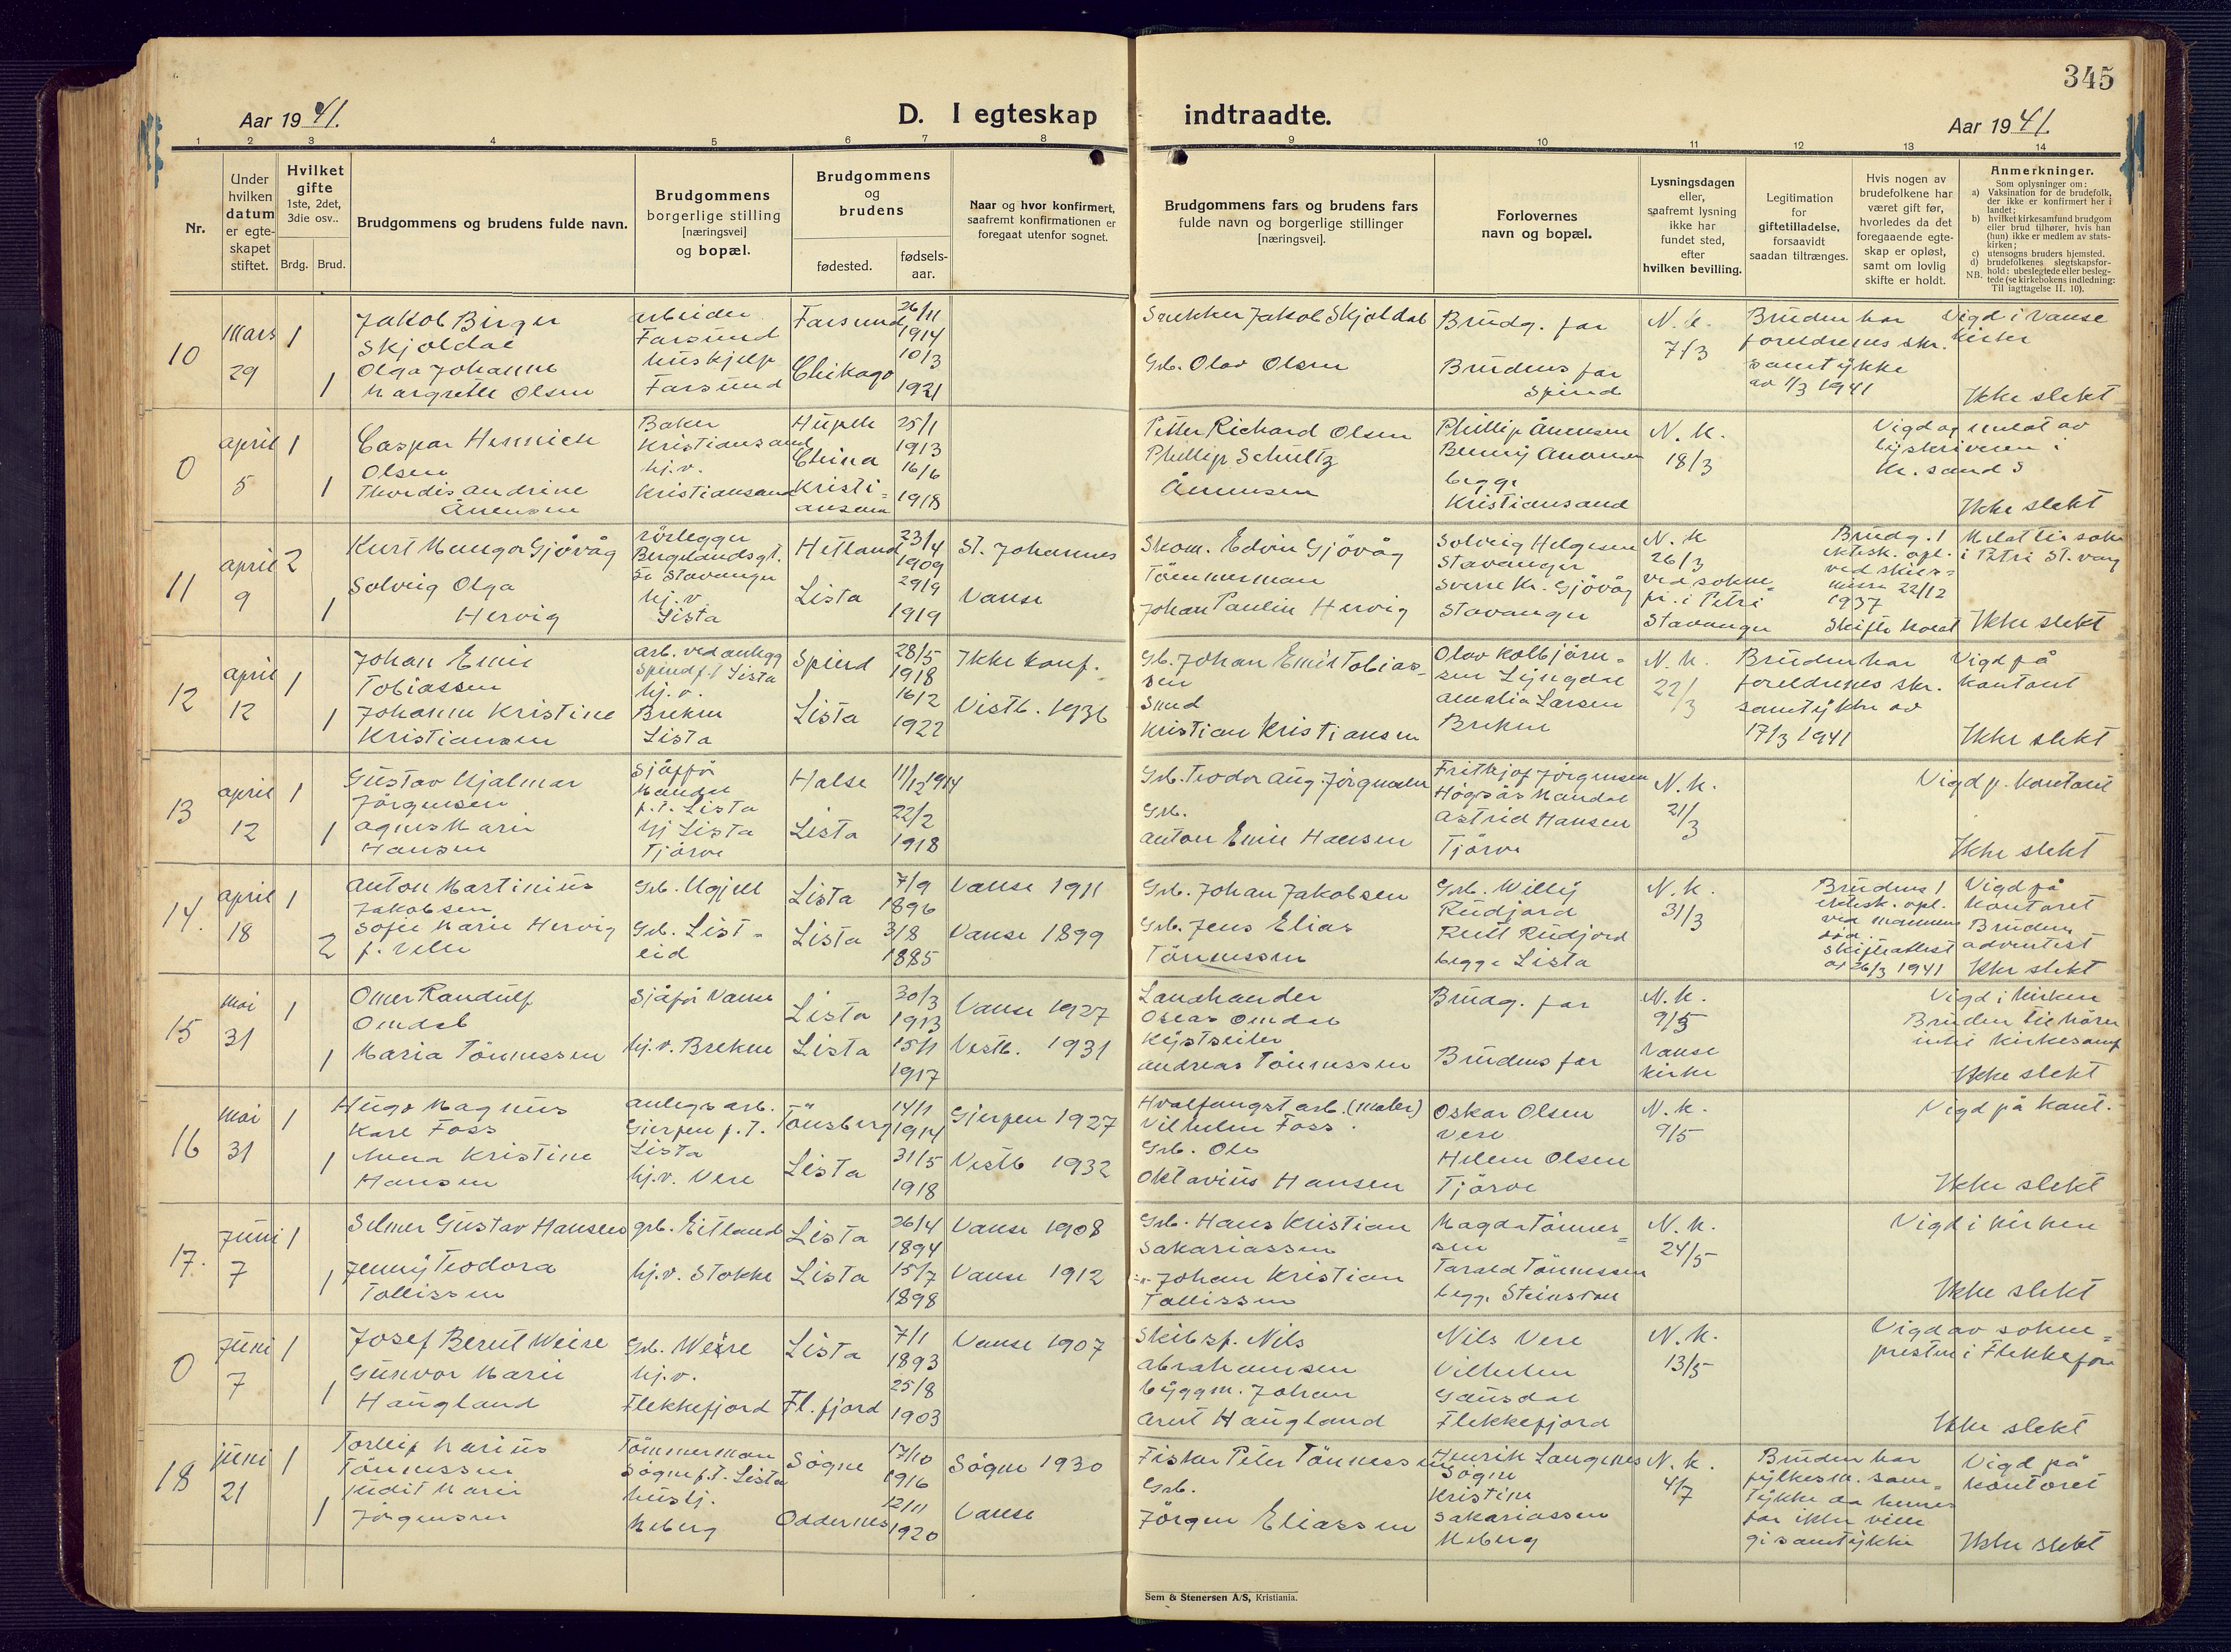 345
Aar 1941.
D. I egteskap indtraadte.
Aar 1941.
1 2 3 4 5 6 7 8 9 10 11 12 13 14
Nr.
Under hvilken datum er egte-skapet stiftet.
Hvilket gifte 1ste, 2det, 3die osv..
Brdg. Brud.
Brudgommens og brudens fulde navn.
Brudgommens borgerlige stilling [næringsvei] og bopæl.
Brudgommens og brudens
fødested.
fødsels-aar.
Naar og hvor konfirmert, saafremt konfirmationen er foregaat utenfor sognet.
Brudgommens fars og brudens fars fulde navn og borgerlige stillinger [næringsvei].
Forlovernes navn og bopæl.
Lysningsdagen eller, saafremt lysning ikke har fundet sted, efter hvilken bevilling.
Legitimation for giftetilladelse, forsaavidt saadan tiltrænges.
Hvis nogen av brudefolkene har været gift før, hvorledes da det foregaaende egte-skap er opløst, samt om lovlig skifte er holdt.
Anmerkninger.
Som oplysninger om:
a) Vaksination for de brudefolk, der ikke er konfirmert her i landet;
b) hvilket kirkesamfund brudgom eller brud tilhører, hvis han (hun) ikke er medlem av stats-kirken;
c) utensogns bruders hjemsted.
d) brudefolkenes slegtskapsfor-hold: ubeslegtede eller besleg-tede (se kirkebokens indledning:
NB. Til iagttagelse II. 10).
10 Mars 29 1 1
Jakob Birger
Skjoldal
Olga Johanne
Margrethe Olsen
arbeider
Farsund
hushjelp
Farsund
Farsund 26/11 1914
Chikago 10/3 1921
Snekker Jakob Skjoldal
Grb. Olav Olsen
Brudg. far
Brudens far
Spind
N. k.
7/3
Bruden har
foreldrenes skr.
samtykke
av 1/3 1941
Vigd i Vanse
Kirke
Ikke slekt
0 april 5 1 1
Caspar Henrich
Olsen
Thordis Andrine
Ånensen
Baker
Kristiansand
hj.v.
Kristiansand
Hupeh
China 25/1 1913
Kristi-
ansand 16/6 1918
Petter Richard Olsen
Phillip Schultz
Ånensen
Phillip Ånensen
Benny Ånensen
begge
Kristiansand
N. k.
18/3
Vigd og meldt av
byskriveren i
Kr.sand S
Ikke slekt
11 april 9 2 1
Kurt Munger Gjövåg
Solveig Olga
Hervig
rörlegger
Bergelandsgt.
Stavanger
hj.v.
Lista
Hetland 23/4 1909
Lista 29/9 1919
St. Johannes
Vanse
Skom. Edvin Gjövåg
Tömmerman
Johan Paulin Hervig
Solveig Helgesen
Stavanger
Sverre Kr. Gjövåg
Stavanger
N. k
26/3
ved sokne-
pr. i Petri
Stavanger
Brudg. 1
ektesk. opl.
ved skils-
misse 22/12
1937
Skifte holdt
Meldt til sokn
i Petri St.vang
Ikke slekt
12 april 12 1 1
Johan Emil
Tobiassen
Johanne Kristine
Kristiansen
arb. ved anlegg
Spind p.t Lista
hj.v.
Brekne
Lista
Spind 28/5 1918
Lista 16/2 1922
Ikke konf.
Vestb. 1936
Gb. Johan Emil Tobias-
sen
Smed
Kristian Kristiansen
Olav Kolbjörn-
sen Lyngdal
Amalia Larsen
Brekne
N. k.
22/3
Bruden har
foreldrenes skr.
samtykke av
17/3 1941
Vigd på
kontoret
Ikke slekt
13 april 12 1 1
Gustav Hjalmar
Jörgensen
Agnes Marie
Hansen
Sjåfför
Mandal
p.t. Lista
hj Lista
Tjörve
Halse 11/12 1914
Lista 22/2 1918
Grb. Teodor Aug. Jörgensen
Grb.
Anton Emil Hansen
Frithjof Jörgensen
Högsås Mandal
Astrid Hansen
Tjörve
N. k.
21/3
Vigd p. kontoret
Ikke slekt
14. april 18 1 2
Anton Martinius
Jakobsen
Sofie Marie Hervig
f. Velle
Grb. Ugjell
Grb. List-
eid
Lista 7/9 1896
Lista 3/8 1885
Vanse 1911
Vanse 1899
Grb. Johan Jakobsen
Grb. Jens Elias
Tönnessen
Grb. Willy
Rudjord
Rutt Rudjord
begge Lista
N. k.
31/3
Brudens 1
ektesk. opl.
ved mannens
död.
Skifteattest
av 26/3 1941
Vigd på
kontoret
Bruden
adventist
Ikke slekt
15 mai 31 1 1
Omer Randulf
Omdal
Maria Tönnessen
Sjåför Vanse
hj.v. Brekne
Lista 30/3 1913
Lista 15/1 1917
Vanse 1927
Vestb. 1931
Landhandler
Oskar Omdal
Kystseiler
Andreas Tönnessen
Brudg. far
Brudens far
N. k.
9/5
Vanse
kirke
Vigd i kirken
Bruden tilhörer
intet kirkesamf
Ikke slekt
16 mai 31 1 1
Hugo Magnus
Karl Foss
Anna Kristine
Hansen
anlegsarb.
Gjerpen p.t.
Lista
hj.v. Vere
Tönsberg 14/1 1914
Lista 31/5 1918
Gjerpen 1927
Vestb 1932
Hvalfangstarb. (maler)
Vilhelm Foss.
Grb. Ole
Oktavius Hansen
Oskar Olsen
Vere
Helene Olsen
Tjörve
N. k.
9/5
Vigd på kont.
Ikke slekt
17. Juni 7 1 1
Selmer Gustav Hansen
Jenny Teodora
Tollissen
grb. Eitland
hj.v. Stokke
Lista 26/4 1894
Lista 15/7 1898
Vanse 1908
Vanse 1912
Grb. Hans Kristian
Sakariassen
-"- Johan Kristian
Tollissen
Magda Tönnes-
sen
Tarald Tönnessen
begge Steinsvan
N. k.
24/5
Vigd i kirken
Ikke slekt
0 Juni 7 1 1
Josef Berut Weire
Gunvor Marie
Haugland
Grb. Weire
hj.v.
Flekkefjord
Lista 7/1 1893
Fl.fjord 25/8 1903
Vanse 1907
Skibsf. Nils
Abrahamsen
byggm. Johan
Arnt Haugland
Nils Vere
Vilhelm
Gausdal
Flekkefjord
N. k.
13/5
Vigd av sokne-
presten i Flekkefjor
Ikke slekt
18 juni 21 1 1
Torleif Marius
Tönnessen
Judit Marie
Jörgensen
Tömmerman
Sögne p.t. Lista
hushj.
Meberg
Sögne 17/10 1916
Oddernes 12/11 1920
Sögne 1930
Vanse
Fisker Peter Tönnessen
Grb.
Jörgen Eliassen
Henrik Langenes
Sögne
Kristine
Sakariassen
Meberg
N. k.
4/7
Bruden har
fylkesm. sam-
tykke da hennes
far ikke ville
gi samtykke
Vigd på
kontoret
Ikke slekt
Sem & Stenersen A/S, Kristiania.